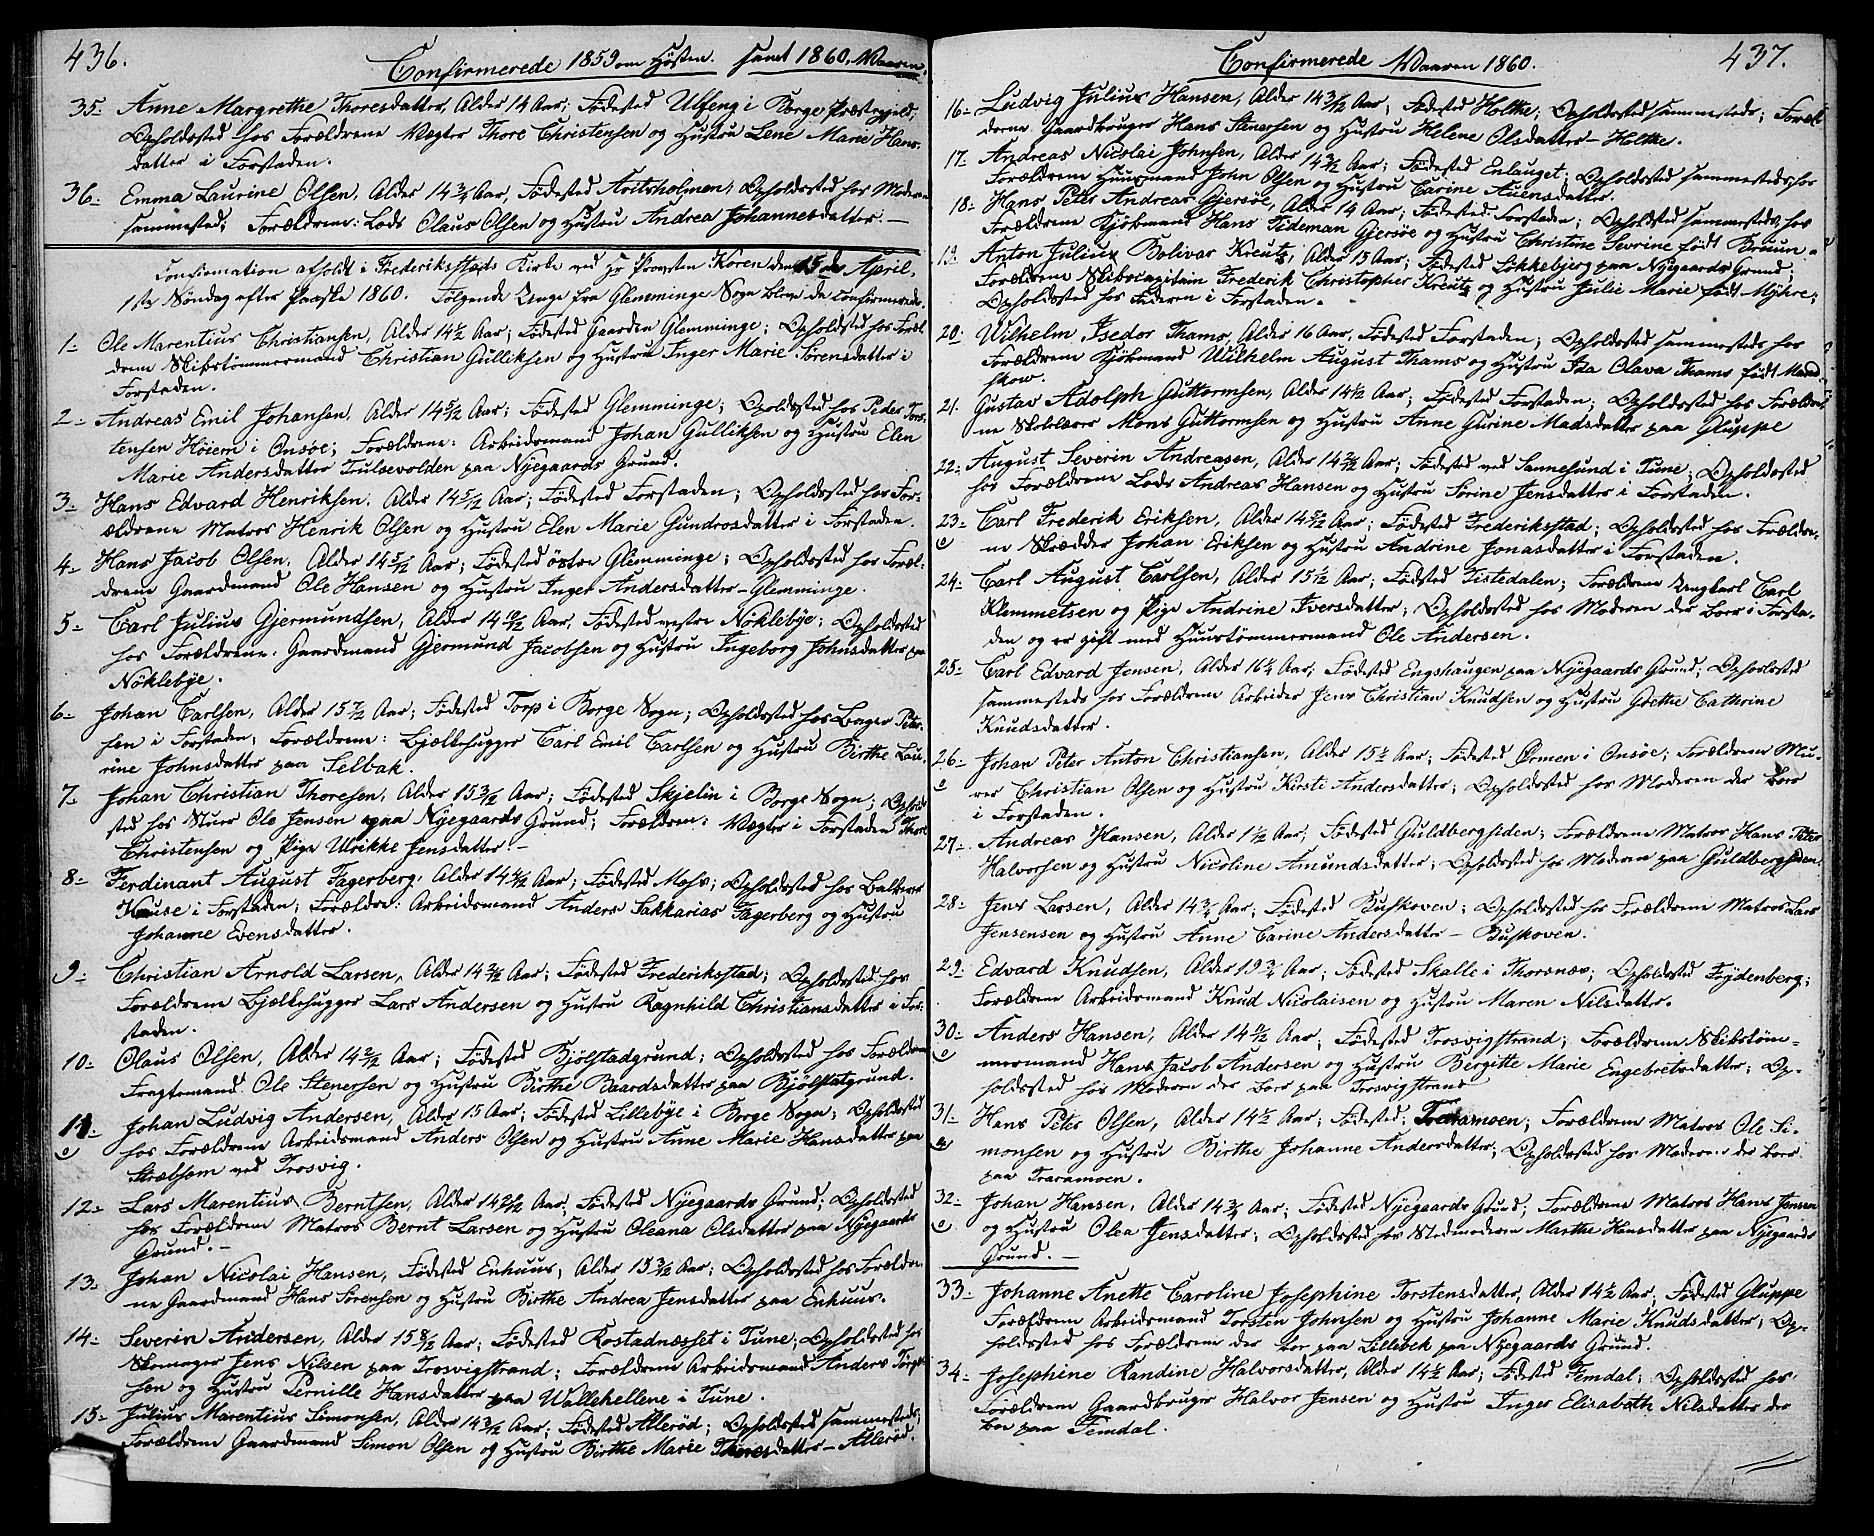 436.
Confirmerede 1859 om Høsten. samt 1860. Vaaren.
35- Anne Margrethe Thoresdatter, Alder 14 Aar; Fødested Ulfeng i Borge Præstegjeld;
Opholdssted hos Forældrene Vægter Thore Christensen og Hustru Lene Marie Hans-
datter i Forstaden.
36- Emma Laurine Olsen, Alder 14 3/4 Aar, Fødested Aritsholmen; Opholdssted hos Moderen
sammested; Forældrene: Lods Claus Olsen og Hustru Andrea Johannesdatter. —
Confirmation afholdt i Frederiksstads Kirke ved Hr Provsten Koren den 15de April,
1ste Søndag efter Paaske 1860. Følgende Unge fra Glemminge Sogn bleve da confirmerede.
1- Ole Marentius Christiansen, Alder 14 1/2 Aar; Fødested Gaarden Glemminge; Opholdssted hos Foræl-
drene Skibstømmermand Christian Gulliksen og Hustru Inger Marie Sørensdatter i
Forstaden.
2- Andreas Emil Johansen, Alder 14 5/12 Aar; Fødested Glemminge; Opoldssted hos Peder Tors-
tensen Høiem i Onsøe; Forældrene: Arbeidsmand Johan Gulliksen og Hustru Elen
Marie Andersdatter Trulsevolden paa Nyegaards Grund.
3- Hans Edvard Henriksen, Alder 14 5/12 Aar; Fødested Forstaden; Opholdssted hos For-
ældrene Matros Henrik Olsen og Hustru Elen Marie Gundrosdatter i Forstaden.
4- Hans Jacob Olsen, Alder 14 5/12 Aar; Fødested østre Glemminge; Opholdssted hos Foræl-
drene Gaardmand Ole Hansen og Hustru Inger Andersdatter - Glemminge.
5- Carl Julius Gjermundsen, Alder 14 10/12 Aar, Fødested vestre Nøklebye; Opholdssted
hos Forældrene. Gaardmand Gjermund Jacobsen og Hustru Ingeborg Johnsdatter paa
Nøklebye.
6- Johan Carlsen, Alder 15 7/12 Aar; Fødested Torp i Borge Sogn; Opholdssted hos Bager Peter-
sen i Forstaden; Forældrene: Bjælkehugger Carl Emil Carlsen og Hustru Birthe Lau-
rine Johnsdatter paa Selbak.
7- Johan Christian Thoresen, Alder 15 3/12 Aar; Fødested Skjelin i Borge Sogn; Opholds-
sted hos Stuer Ole Jensen paa Nyegaards Grund; Forældrene: Vægter i Forstaden Thore
Christensen og Pige Ulrikke Jensdatter. -
8- Ferdinant August Fagerberg, Alder 14 4/12 Aar; Fødested Moss; Opholdssted hos
Kause i Forstaden; Forældre: Arbeidsmand Anders Sakkarias Fagerberg og Hustru
Johanne Evensdatter.
9- Christian Arnold Larsen, Alder 14 3/12 Aar; Fødested Frederiksstad; Opholdssted hos
Forældrene Bjælkehugger Lars Andersen og Hustru Ragnhild Christiansdatter i For-
staden.
10- Olaus Olsen, Alder 14 2/12 Aar; Fødested Bjølstadgrund; Opholdssted hos Forældrene
Fragtemand Ole Stenersen og Hustru Birthe Baardsdatter paa Bjølstatgrund.
11- Johan Ludvig Andersen, Alder 15 Aar; Fødested Lillebye i Borge Sogn; Opholdssted
hos Forældrene Arbeidsmand Anders Olsen og Hustru Anne Marie Hansdatter paa
Stræbsom ved Trosvig.
12- Lars Marentius Berntsen, Alder 14 9/12 Aar; Fødested Nyegaards Grund; Opholdssted
hos Forældrene Matros Bernt Larsen og Hustru Oleana Olsdatter paa Nyegaards
Grund. -
13- Johan Nicolai Hansen, Fødested Enhuus, Alder 15 3/12 Aar; Opholdssted hos Forældre-
ne Gaardmand Hans Sørensen og Hustru Birthe Andrea Jensdatter paa Enhuus.
14- Severin Andersen, Alder 15 8/12 Aar; Fødested Rostadnæsset i Tune; Opholdssted hos
Skomager Jens Nilsen paa Trosvigstrand; Forældrene Arbeidsmand Anders
sen og Hustru Pernille Hansdatter paa Vallehellene i Tune.
15- Julius Marentius Simonsen, Alder 14 3/12 Aar; Fødested Allerød; Opholdssted sammesteds;
Forældrene Gaardmand Simon Olsen og Hustru Birthe Marie Thoresdatter - Allerød.
Confirmerede Vaaren 1860.
437.
16- Ludvig Julius Hansen, Alder 14 3/12 Aar; Fødested Holtke; Opholdssted sammesteds; Foræl-
drene Gaardbruger Hans Stenersen og Hustru Helene Olsdatter - Holtke.
17 Andreas Nicolai Johnsen, Alder 14 3/12 Aar; Fødested Enlauget; Opholdssted sammesteds hos
Forældrene Huusmand John Olsen og Hustru Carine Auensdatter.
18- Hans Peter Andreas Gjersøe, Alder 14 Aar; Fødested Forstaden; Opholdssted sammesteds hos
Forældrene Kjøbmand Hans Tideman Gjersøe og Hustru Christine Sevrine født Bruun -
19. Anton Julius Bolivar Kreutz, Alder 15 Aar; Fødested Løkkebjerg paa Nyegaards Grund;
Forældrene Skibscapitain Frederik Christopher Kreutz og Hustru Julie Marie født Myhre;
Opholdssted hos Faderen i Forstaden.
20. Wilhelm Isedor Thams, Alder 16 Aar, Fødested Forstaden; Opholdssted sammesteds hos
Forældrene Kjøbmand Wilhelm August Thams og Hustru Ida Olava Thams født Mand-
skow.
21. Gustav Adolph Guttormsen, Alder 14 1/2 Aar; Fødested Forstaden; Opholdssted hos Forældre-
ne Skolelærer Mons Guttormsen og Hustru Anne Gurine Madsdatter paa Gluppe
22- August Severin Andreasen, Alder 14 3/12 Aar; Fødested ved Sannesund i Tune; Opholdssted
hos Forældrene Lods Andreas Hansen og Hustru Sørine Jensdatter i Forstaden.
23- Carl Frederik Eriksen, Alder 14 5/12 Aar; Fødested Frederiksstad; Opholdssted hos Forældre-
ne Skrædder Johan Eriksen og Hustru Andrine Jonasdatter i Forstaden.
24- Carl August Carlsen, Alder 15 1/2 Aar; Fødested Tistedalen; Forældrene Ungkarl Carl
Klemmetsen og Pige Andrine Iversdatter; Opholdssted hos Moderen der boer i Forsta-
den og er gift med Huustømmermand Ole Andersen.
25- Carl Edvard Jensen, Alder 16 1/4 Aar; Fødested Engshaugen paa Nyegaards Grund; Opholdssted
sammesteds hos Forældrene Arbeider Jens Christian Knudsen og Hustru Grethe Cathrine
Knudsdatter.
26- Johan Peter Anton Christiansen, Alder 15 1/2 Aar; Fødested Ørmen i Onsøe; Forældrene Mu-
rer Christian Olsen og Hustru Kirsti Andersdatter; Opholdssted hos Moderen der boer
i Forstaden.
27- Andreas Hansen, Alder 1 1/2 Aar; Fødested Guldbergsiden; Forældrene Matros Hans Peter
Halvorsen og Hustru Nicoline Amundsdatter; Opholdssted hos Moderen paa Guldbergsiden.
28- Jens Larsen, Alder 14 3/4 Aar; Fødested Buskoven; Opholdssted hos Forældrene Matros Lars
Jensensen og Hustru Anne Carine Andersdatter - Buskoven.
29- Edvard Knudsen, Alder 19 3/4 Aar; Fødested Skalle i Thorsnæs; Opholdssted Fejdenberg;
Forældrene Arbeidsmand Knud Nicolaisen og Hustru Maren Nilsdatter.
30- Anders Hansen, Alder 14 1/2 Aar; Fødested Trosvigstrand; Forældrene Skibstøm-
mermand Hans Jacob Andersen og Hustru Bergitte Marie Engebretsdatter; Op-
holdssted hos Moderen der boer paa Trosvigstrand
31- Hans Peter Olsen, Alder 14 1/2 Aar; Fødested: Traramoen; Forældrene Matros Ole Si-
monsen og Hustru Birthe Johanne Andersdatter; Opholdssted hos Moderen der boer
paa Traramoen.
32- Johan Hansen, Alder 14 3/4 Aar; Fødested Nyegaards Grund; Forældrene Matros Hans Jensen
og Hustru Olea Jensdatter; Opholdssted hos Stedmoderen Marthe Hansdatter paa Nyegaards
Grund. —
33- Johanne Anette Caroline Josephine Torstensdatter, Alder 14 1/2 Aar, Fødested Gluppe
Forældrene Arbeidsmand Torsten Johnsen og Hustru Johanne Marie Knudsdatter; Op-
holdssted hos Forældrene der boe paa Lillebek paa Nyegaards Grund.
34- Josephine Randine Halvorsdatter, Alder 14 1/2 Aar; Fødested Femdal; Opholdssted hos
Forældrene Gaardbruger Halvor Jensen og Hustru Inger Elisabeth Nilsdatter der
boe paa Femdal.